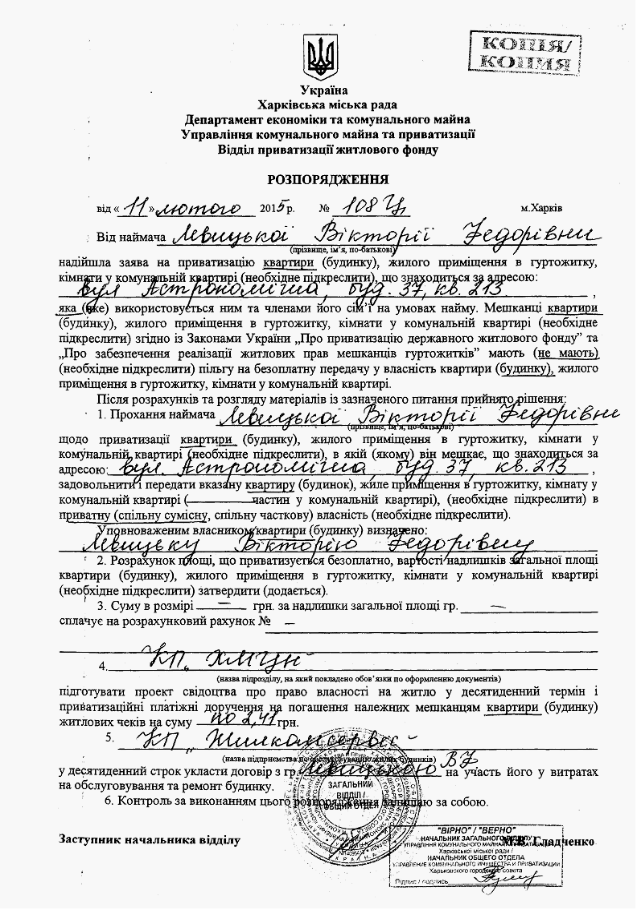 КОПІЯ/
КОПИЯ
Україна
Харківська міська рада
Департамент економіки та комунального майна
Управління комунального майна та приватизації
Відділ приватизації житлового фонду
РОЗПОРЯДЖЕННЯ
від « 11 » лютого 2015 р. № 108 Ц м.Харків
Від наймача Левицької Вікторії Федорівни
(прізвище, ім’я, по-батькові)
надійшла заява на приватизацію квартири (будинку), жилого приміщення в гуртожитку,
кімнати у комунальній квартирі (необхідне підкреслити), що знаходиться за адресою:
вул Астрономічна, буд. 37, кв. 213 ,
яка (вже) використовується ним та членами його сім’ї на умовах найму. Мешканці квартири
(будинку), жилого приміщення в гуртожитку, кімнати у комунальній квартирі (необхідне
підкреслити) згідно із Законами України „Про приватизацію державного житлового фонду” та
„Про забезпечення реалізації житлових прав мешканців гуртожитків” мають (не мають)
(необхідне підкреслити) пільгу на безоплатну передачу у власність квартири (будинку), жилого
приміщення в гуртожитку, кімнати у комунальній квартирі.
Після розрахунків та розгляду матеріалів із зазначеного питання прийнято рішення:
1. Прохання наймача Левицької Вікторії Федорівни
(прізвище, ім’я, по-батькові)
щодо приватизації квартири (будинку), жилого приміщення в гуртожитку, кімнати у
комунальній квартирі (необхідне підкреслити), в якій (якому) він мешкає, що знаходиться за
адресою: вул. Астрономічна буд. 37 кв. 213 ,
задовольнити і передати вказану квартиру (будинок), жиле приміщення в гуртожитку, кімнату у
комунальній квартирі ( частин у комунальній квартирі), (необхідне підкреслити) в
приватну (спільну сумісну, спільну часткову) власність (необхідне підкреслити).
Уповноваженим власником квартири (будинку) визначено:
Левицьку Вікторію Федорівну
2. Розрахунок площі, що приватизується безоплатно, вартості надлишків загальної площі
квартири (будинку), жилого приміщення в гуртожитку, кімнати у комунальній квартирі
(необхідне підкреслити) затвердити (додається).
3. Суму в розмірі — грн. за надлишки загальної площі гр. —
сплачує на розрахунковий рахунок № —
4. КП „ХМЦН"
(назва підрозділу, на який покладено обов’язки по оформленню документів)
підготувати проект свідоцтва про право власності на житло у десятиденний термін і
приватизаційні платіжні доручення на погашення належних мешканцям квартири (будинку)
житлових чеків на суму по 2,41 грн.
5. КП „Жилкомсервіс"
(назва підприємства по обслуговуванню жилих будинків)
у десятиденний строк укласти договір з гр. Левицькою В.Ф. на участь його у витратах
на обслуговування та ремонт будинку.
6. Контроль за виконанням цього розпорядження залишаю за собою.
ЗАГАЛЬНИЙ
ВІДДІЛ /
ОБЩИЙ ОТДЕЛ
Заступник начальника відділу Гладченко
"ВІРНО" / "ВЕРНО"
НАЧАЛЬНИК ЗАГАЛЬНОГО ВІДДІЛУ
УПРАВЛІННЯ КОМУНАЛЬНОГО МАЙНА ТА ПРИВАТИЗАЦІЇ
Харківської міської ради /
НАЧАЛЬНИК ОБЩЕГО ОТДЕЛА
УПРАВЛЕНИЕ КОММУНАЛЬНОГО ИМУЩЕСТВА И ПРИВАТИЗАЦИИ
Харьковского городского совета
Підпис / подпись